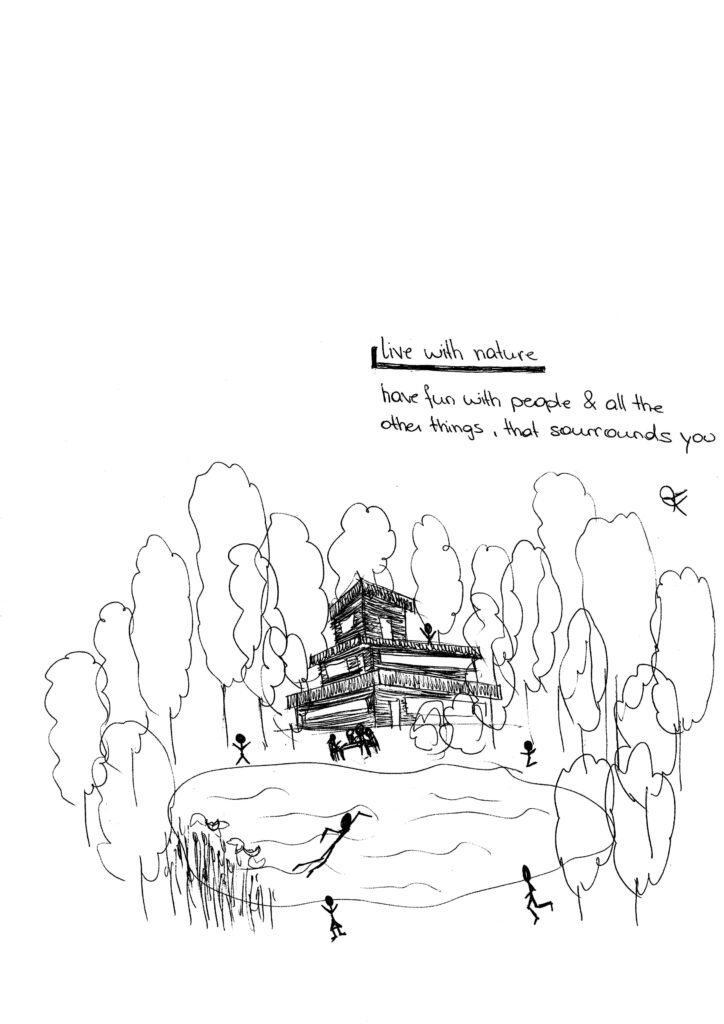 live with nature
have fun with people & all the
other things, that sourrounds you